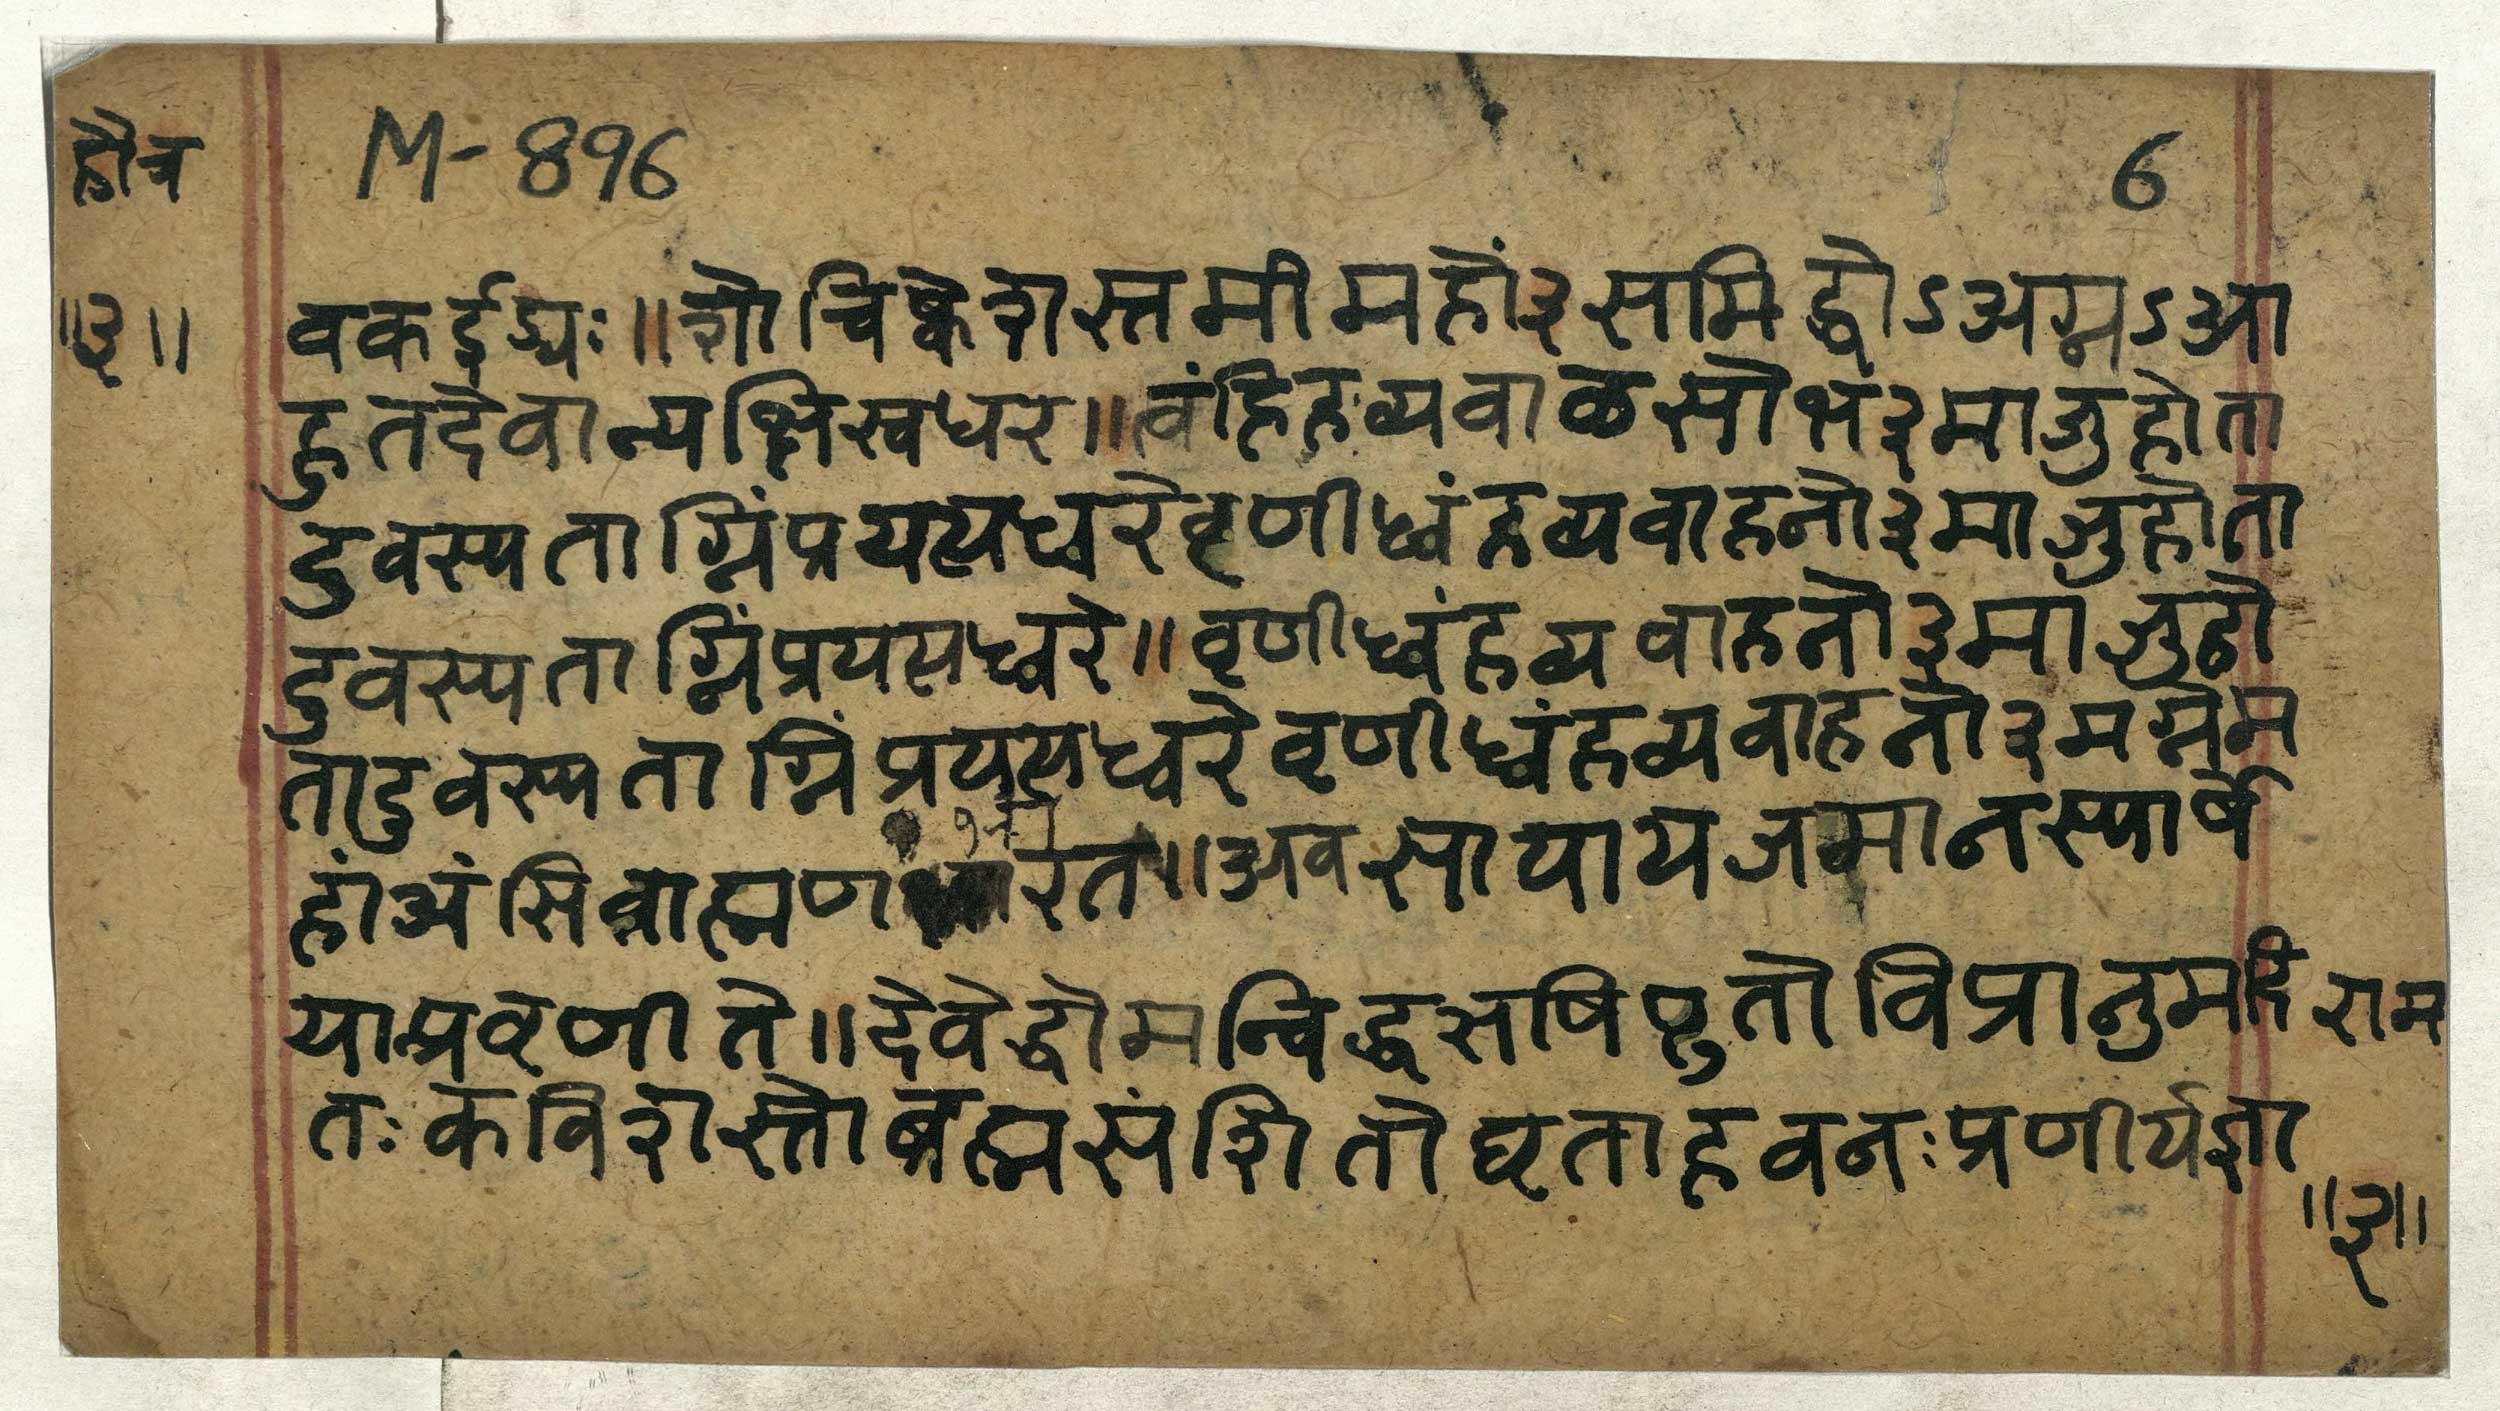 हौत्र
M-896
6
॥३॥
वकईड्यः॥शोचिष्केशस्तमीमहों३समिद्धोऽअग्नऽआ
हुतदेवान्यक्षिस्वधर॥त्वंहिहव्यवाळसोभं३माजुहोता
दुवस्यताग्निंप्रयत्यध्वरेवृणीध्वंहव्यवाहनो३माजुहोता
दुवस्यताग्निंप्रयत्यध्वरे॥वृणीध्वंहव्यवाहनो३माजुहो
तादुवस्यताग्निंप्रयत्यध्वरेवृणीध्वंहव्यवाहनो३मग्नेम
हांअंसिब्राह्मणभारत॥अवसायायजमानस्यार्षे
यान्प्रवृणीते॥देवेद्धोमन्विद्धऋषिष्टुतोविप्रानुमदि
राम
तःकविशस्तोब्रह्मसंशितोघृताहवनःप्रणीर्यज्ञा
॥३॥